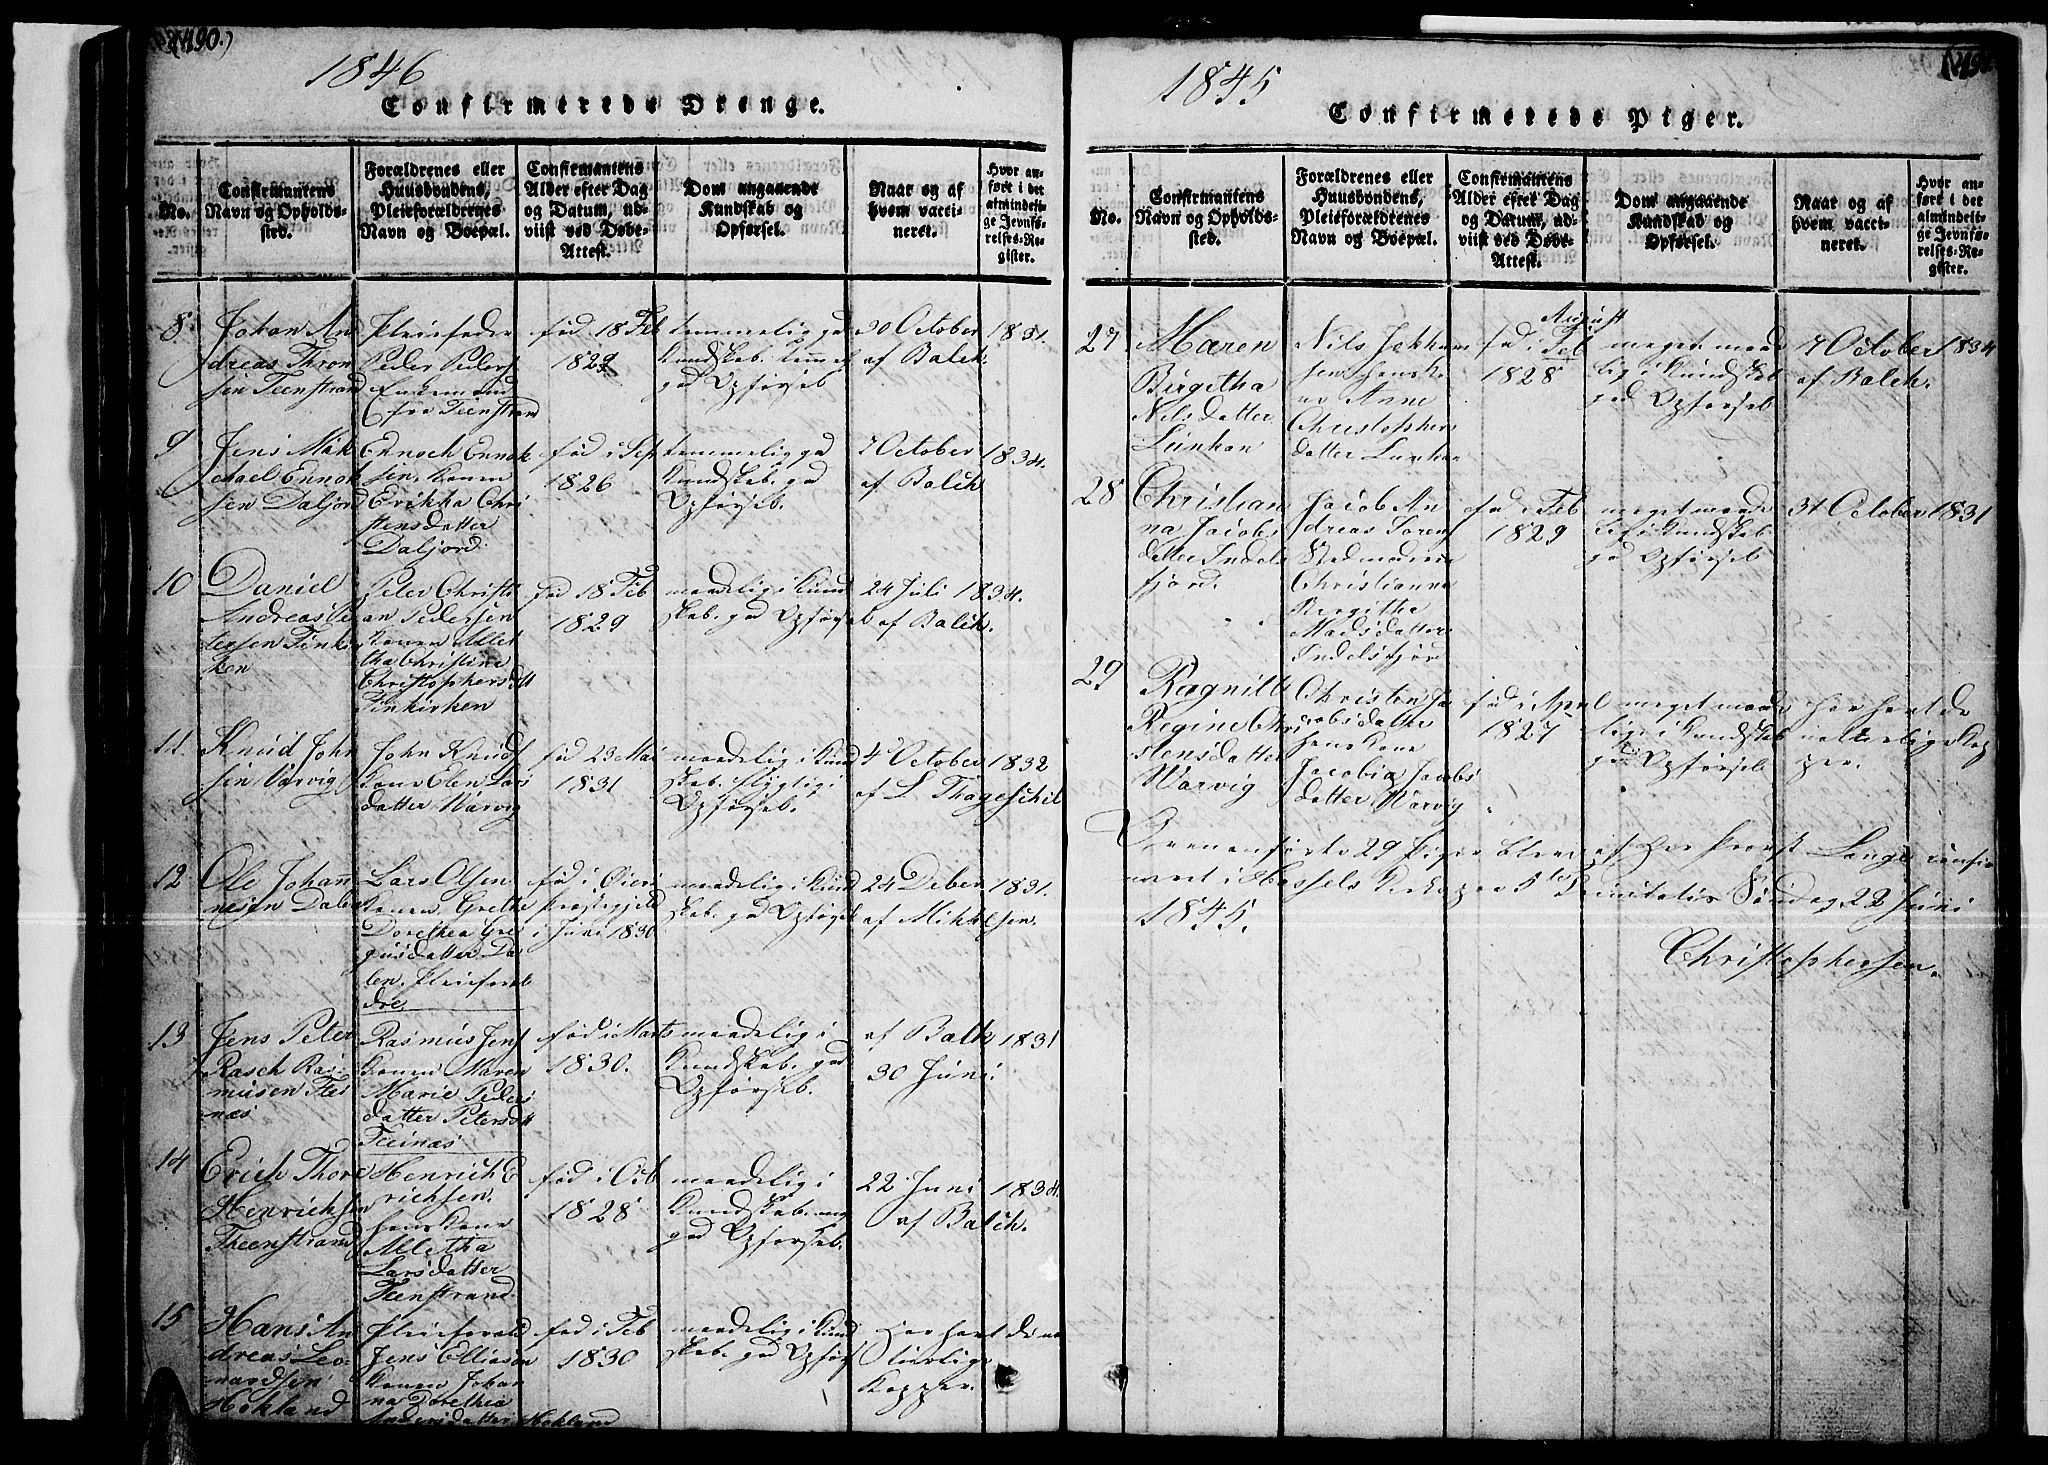 (490.)
1846
Confirmerede Drenge.
No.
Confirmantens Navn og Opholds-sted.
Forældrenes eller Huusbondens, Pleieforældrenes Navn og Boepæl.
Confirmantens Alder efter Dag og Datum, ud-viist ved Døbe-Attest.
Dom angaaende Kundskab og Opførsel.
Naar og af hvem vacci-neret.
Hvor an-ført i det almindeli-ge Jevnfø-relses-Re-gister.
8
Johan An
dreas Thron
sen Teenstrand
Pleiefader
Peder Peders
Enkemand
fra Teenstrand
fød 18 Feb
1829
temmelig god
Kundskab. temmel
god Opførsel
30 October 1831.
af Balch.
9
Jens Mik
chael Ennok
sen Daljord
Ennoch Ennok
sen. Konen
Erikka Chri
stensdatter
Daljord.
fød i Sep
1826
temmelig god
Kundskab. god
Opførsel.
7 October 1834.
af Balch
10
Daniel
Andreas Pe
tersen Finkir
ken
Peter Christi
an Pedersen
Konen Allet
tha Christine
Christophersdtt
Finkirken
fød 18 Feb
1829
maadelig i Kund
skab. god Opførsel
24 Juli 1834.
af Balch.
11.
Knud John
sen Varvig
John Knuds
Kone Elen Lars
datter Warvig
fød 23 Mai
1831
maadelig i Kund
skab. flygtig i
Opførsel.
4 October 1832
af L Thageschil
12
Ole Johan
nesen Dalen
Lars Olsen
Konen Grethe
Dorethea Gre
gusdatter Da
len. Pleieforel
dre.
fød i Øieri
præstegjeld
i Juni 1830
maadelig i Kund
skab. god Opførsel
24 Deber 1831.
af Mikkelsen.
13
Jens Peter
Rasch Ras
musen Fles
næs
Rasmus Jens
Konen Maren
Marie Peders
datter Petersdtt
Fleinæs
fød i Marts
1830.
maadelig i
Kundskab. god
Opførsel.
af Balch 1831
30 Juni.
14
Erich Thore
Henrichsen
Theenstrand
Henrich E
richsen.
hans Kone
Alletha
Larsdatter
Teenstrand.
fød i Octb
1828
maadelig i
Kundskab.
god Opførsel.
22 Juni 1834.
af Balch.
15
Hans An
dreas Leo
nardsen
Hokland
Pleieforeld
Jens Elliasen
Konen Johan
na Dorethea
Andersdatter Hokland
fød i Feb
1830
maadelig i Kund
skab. god Opførs
Har havt de na
turlige
Kopper.
1845
Confirmerede Piger.
No.
Confirmantens Navn og Opholds-sted.
Forældrenes eller Huusbondens, Pleieforældrenes Navn og Boepæl.
Confirmantens Alder efter Dag og Datum, ud-viist ved Døbe-Attest.
Dom angaaende Kundskab og Opførsel.
Naar og af hvem vacci-neret.
Hvor an-ført i det almindeli-ge Jevnfø-relses-Re-gister.
27
Maren
Birgitha
Nilsdatter
Lunkan
Nils Johhan
sen hans Ko
ne Anne
Christophers
datter Lunkan
August
fød i Feb
1828
meget maade
lig i Kundskab
god Opførsel
7 October 1834
af Balch.
28
Christian
na Jacobs
datter Indels
fjord.
Jacob An
dreas Soren
Stedmoderen
Christianna
Birgitha
Madsdatter
Indelsfjord
fød i Feb
1829
meget maade
lig i Kundskab
god Opførsel
31 October 1831
29
Ragnill
Regine Chri
stensdatter
Warvig
Christen Ja
cobsdatter
hans Kone
Jacobia Jacobs
datter Warvig
fød i April
1827
meget maade
lig i Kundskab
god Opførsel
Har havt de
naturlige Kop
per.
Ovenanførte 29 Piger bleve af Her Provst Lange confir
meret i Hassels Kirke paa 5te S Trinitatis Søndag 22 Juni
1845.
Christophersen.